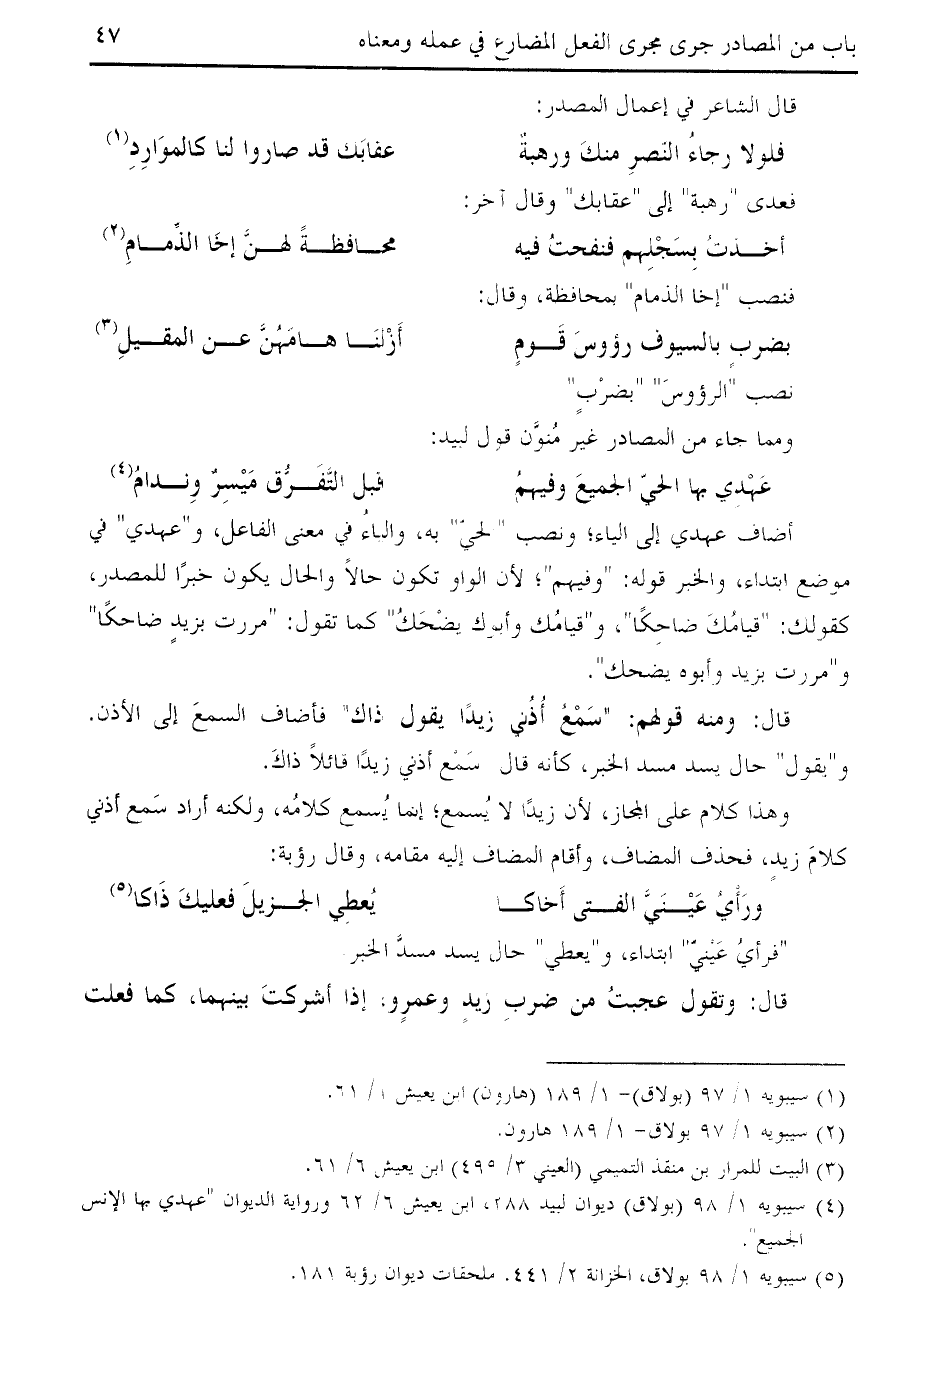 باب من المصادر جرى مجرى الفعل المضارع في عمله ومعناه ٤٧
قال الشاعر في إعمال المصدر:
فلولا رجاءُ النَصرِ منكَ ورهبةٌ عقابَك قد صاروا لنا كالموَارِدِ(١)
فعدى "رهبة" إلى "عقابك" وقال آخر:
أخــذتُ بِسَجْلِهم فنفحتُ فيه محــافظــةً لهــنَّ إخَا الذِّمــامِ(٢)
فنصب "إخا الذمام" بمحافظة، وقال:
بضربٍ بالسيوف رؤوسَ قَــومٍ أَزْلنَــا هــامَهُنَّ عــن المقيــلِ(٣)
نصب "الرؤوسَ" "بضرْبٍ"
ومما جاء من المصادر غير مُنوَّن قول لبيد:
عَهْدِي بها الحيّ الجميعَ وفيهمُ قبل التَّفَــرُّق مَيْسِرٌ ونــدامُ(٤)
أضاف عهدي إلى الياء؛ ونصب "لحيّ" به، والياءُ في معنى الفاعل، و"عهدي" في
موضع ابتداء، والخبر قوله: "وفيهم"؛ لأن الواو تكون حالاً والحال يكون خبرًا للمصدر،
كقولك: "قيامُكَ ضاحكًا"، و"قيامُك وأبوك يضْحَكُ" كما تقول: "مررت بزيدٍ ضاحكًا"
و"مررت بزيد وأبوه يضحك".
قال: ومنه قولهم: "سَمْعُ أُذُني زيدًا يقول ذاك" فأضاف السمعَ إلى الأذن.
و"يقول" حال يسد مسد الخبر، كأنه قال سَمْع أذني زيدًا قائلاً ذاكَ.
وهذا كلام على المجاز، لأن زيدًا لا يُسمع؛ إنما يُسمع كلامُه، ولكنه أراد سَمع أذني
كلامَ زيدٍ، فحذف المضاف، وأقام المضاف إليه مقامه، وقال رؤبة:
ورَأْيُ عَيْــنَيَّ الفــتى أَخاكــا يُعطِي الجــزيلَ فعليكَ ذَاكا(٥)
"فرأيُ عَيْنيّ" ابتداء، و"يعطي" حال يسد مسدَّ الخبر
قال: وتقول عجبتُ من ضربِ زيدٍ وعمرٍو: إذا أشركتَ بينهما، كما فعلت
(١) سيبويه ١/ ٩٧ (بولاق)- ١/ ١٨٩ (هارون) ابن يعيش ١/ ٦١.
(٢) سيبويه ١/ ٩٧ بولاق- ١/ ١٨٩ هارون.
(٣) البيت للمرار بن منقذ التميمي (العيني ٣/ ٤٩٥) ابن يعيش ٦/ ٦١.
(٤) سيبويه ١/ ٩٨ (بولاق) ديوان لبيد ٢٨٨، ابن يعيش ٦/ ٦٢ ورواية الديوان "عهدي بها الإنس
الجميع".
(٥) سيبويه ١/ ٩٨ بولاق، الخزانة ٢/ ٤٤١. ملحقات ديوان رؤبة ١٨١.